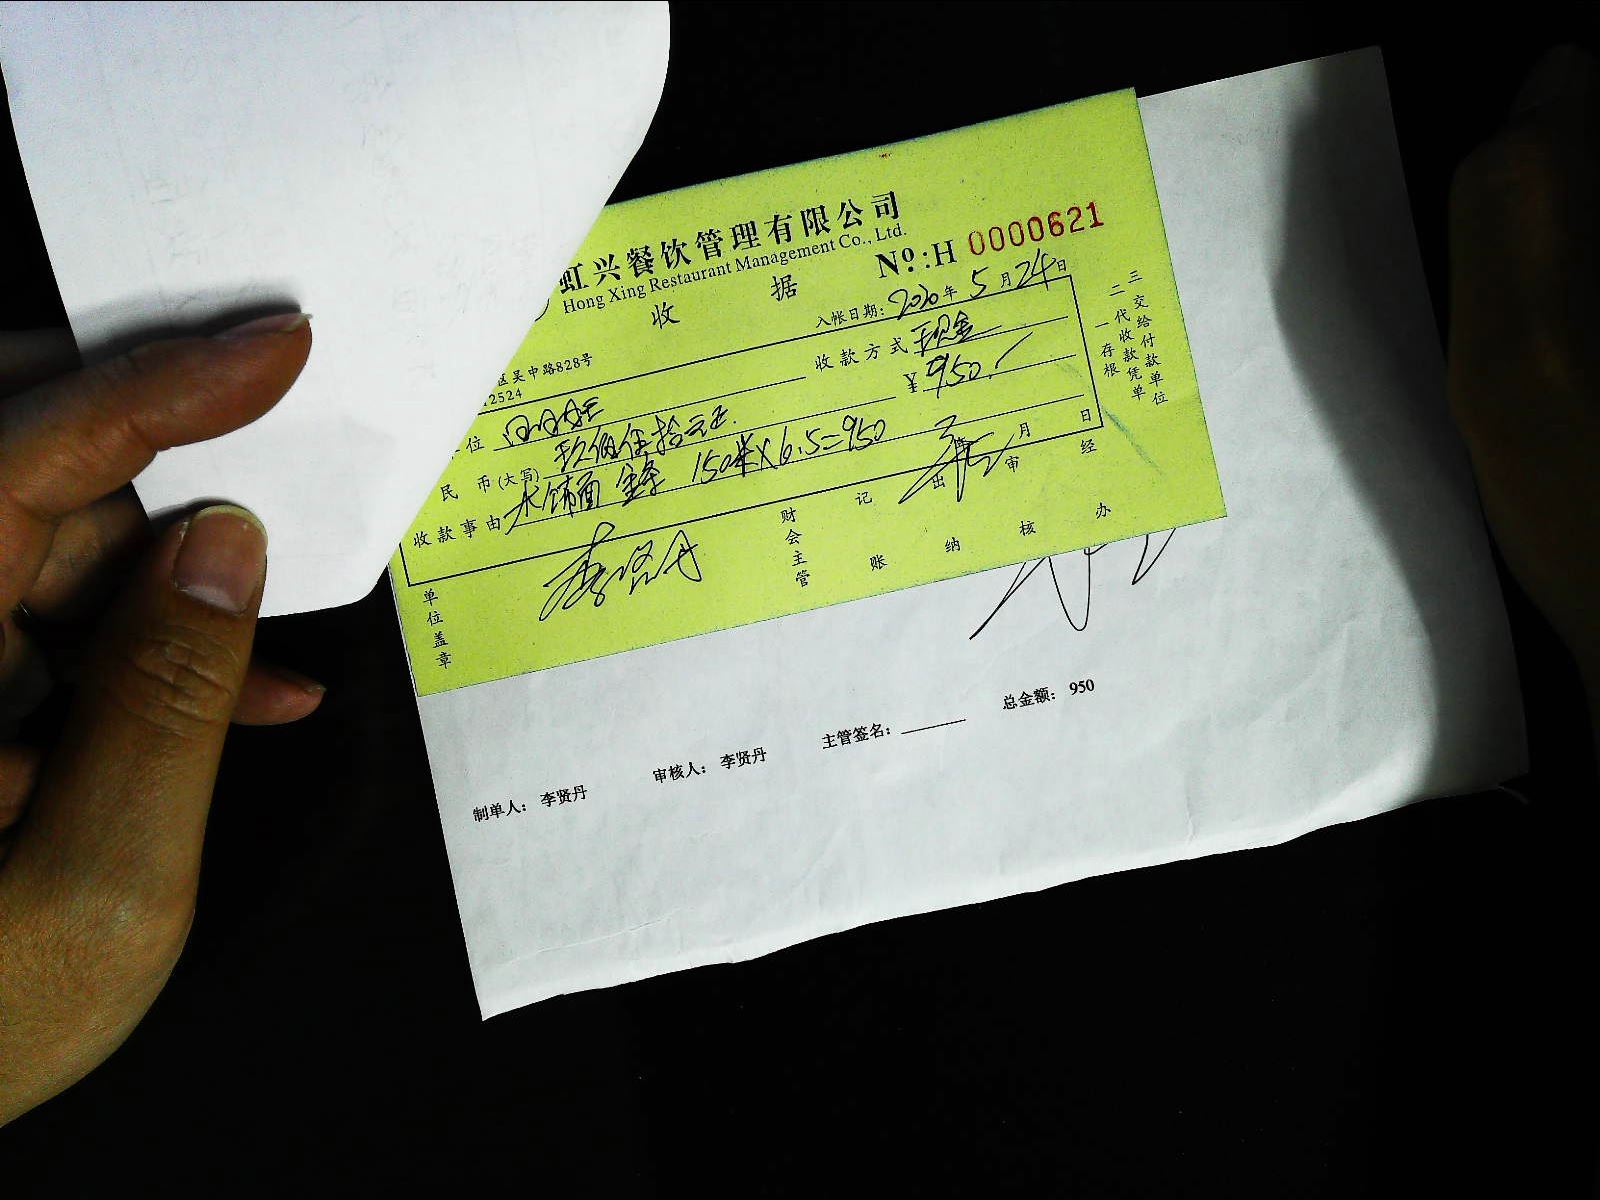 虹兴餐饮管理有限公司
Hong Xing Restaurant Management Co., Ltd.
收 据
№:H 0000621
入帐日期: 2020 年 5 月 24 日
区吴中路828号
12524
收款方式 现金
位
¥ 950.
民 币 (大写) 玖佰伍拾元正
收款事由 水饰面 150米×6.5=950
月 日
单位盖章
李贤丹
财会主管
记账
出纳
审核
经办
一存根
二代收款凭单
三交给付款单位
总金额: 950
主管签名:
审核人: 李贤丹
制单人: 李贤丹